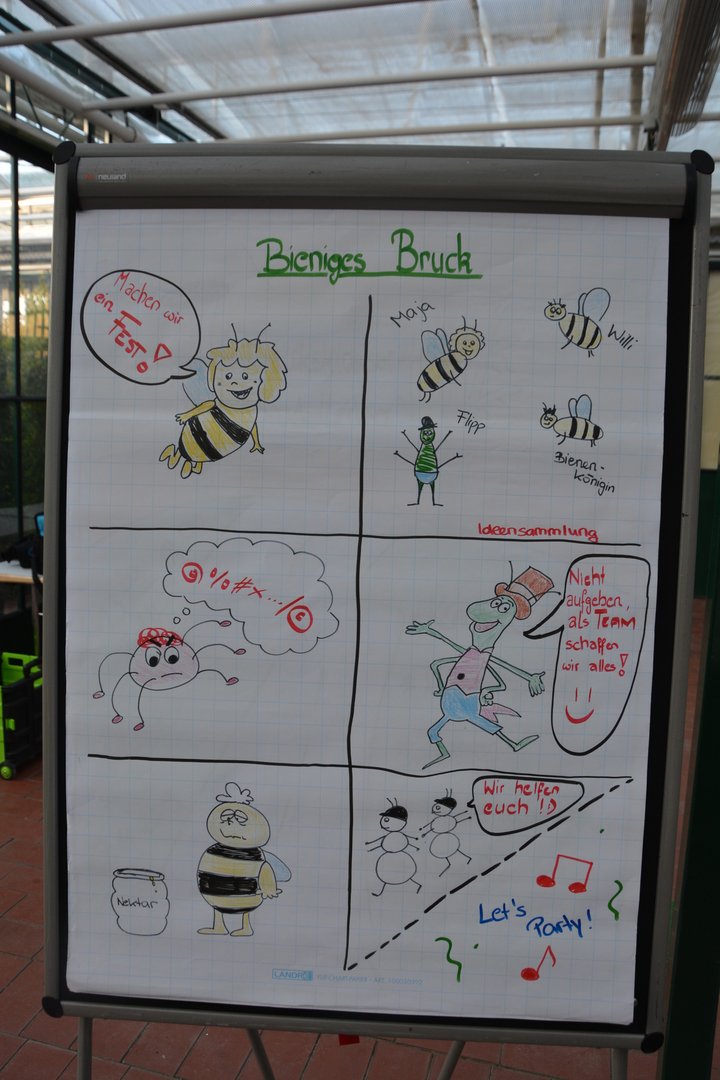 neuland
Bieniges Bruck
Machen wir
ein
FEST!
Maja
Willi
Flipp
Bienen-
königin
Ideensammlung
@%#x.../©
Nicht
aufgeben,
als TEAM
schaffen
wir alles!
Nektar
Wir helfen
euch!!
Let's
Party!
LANDRÉ